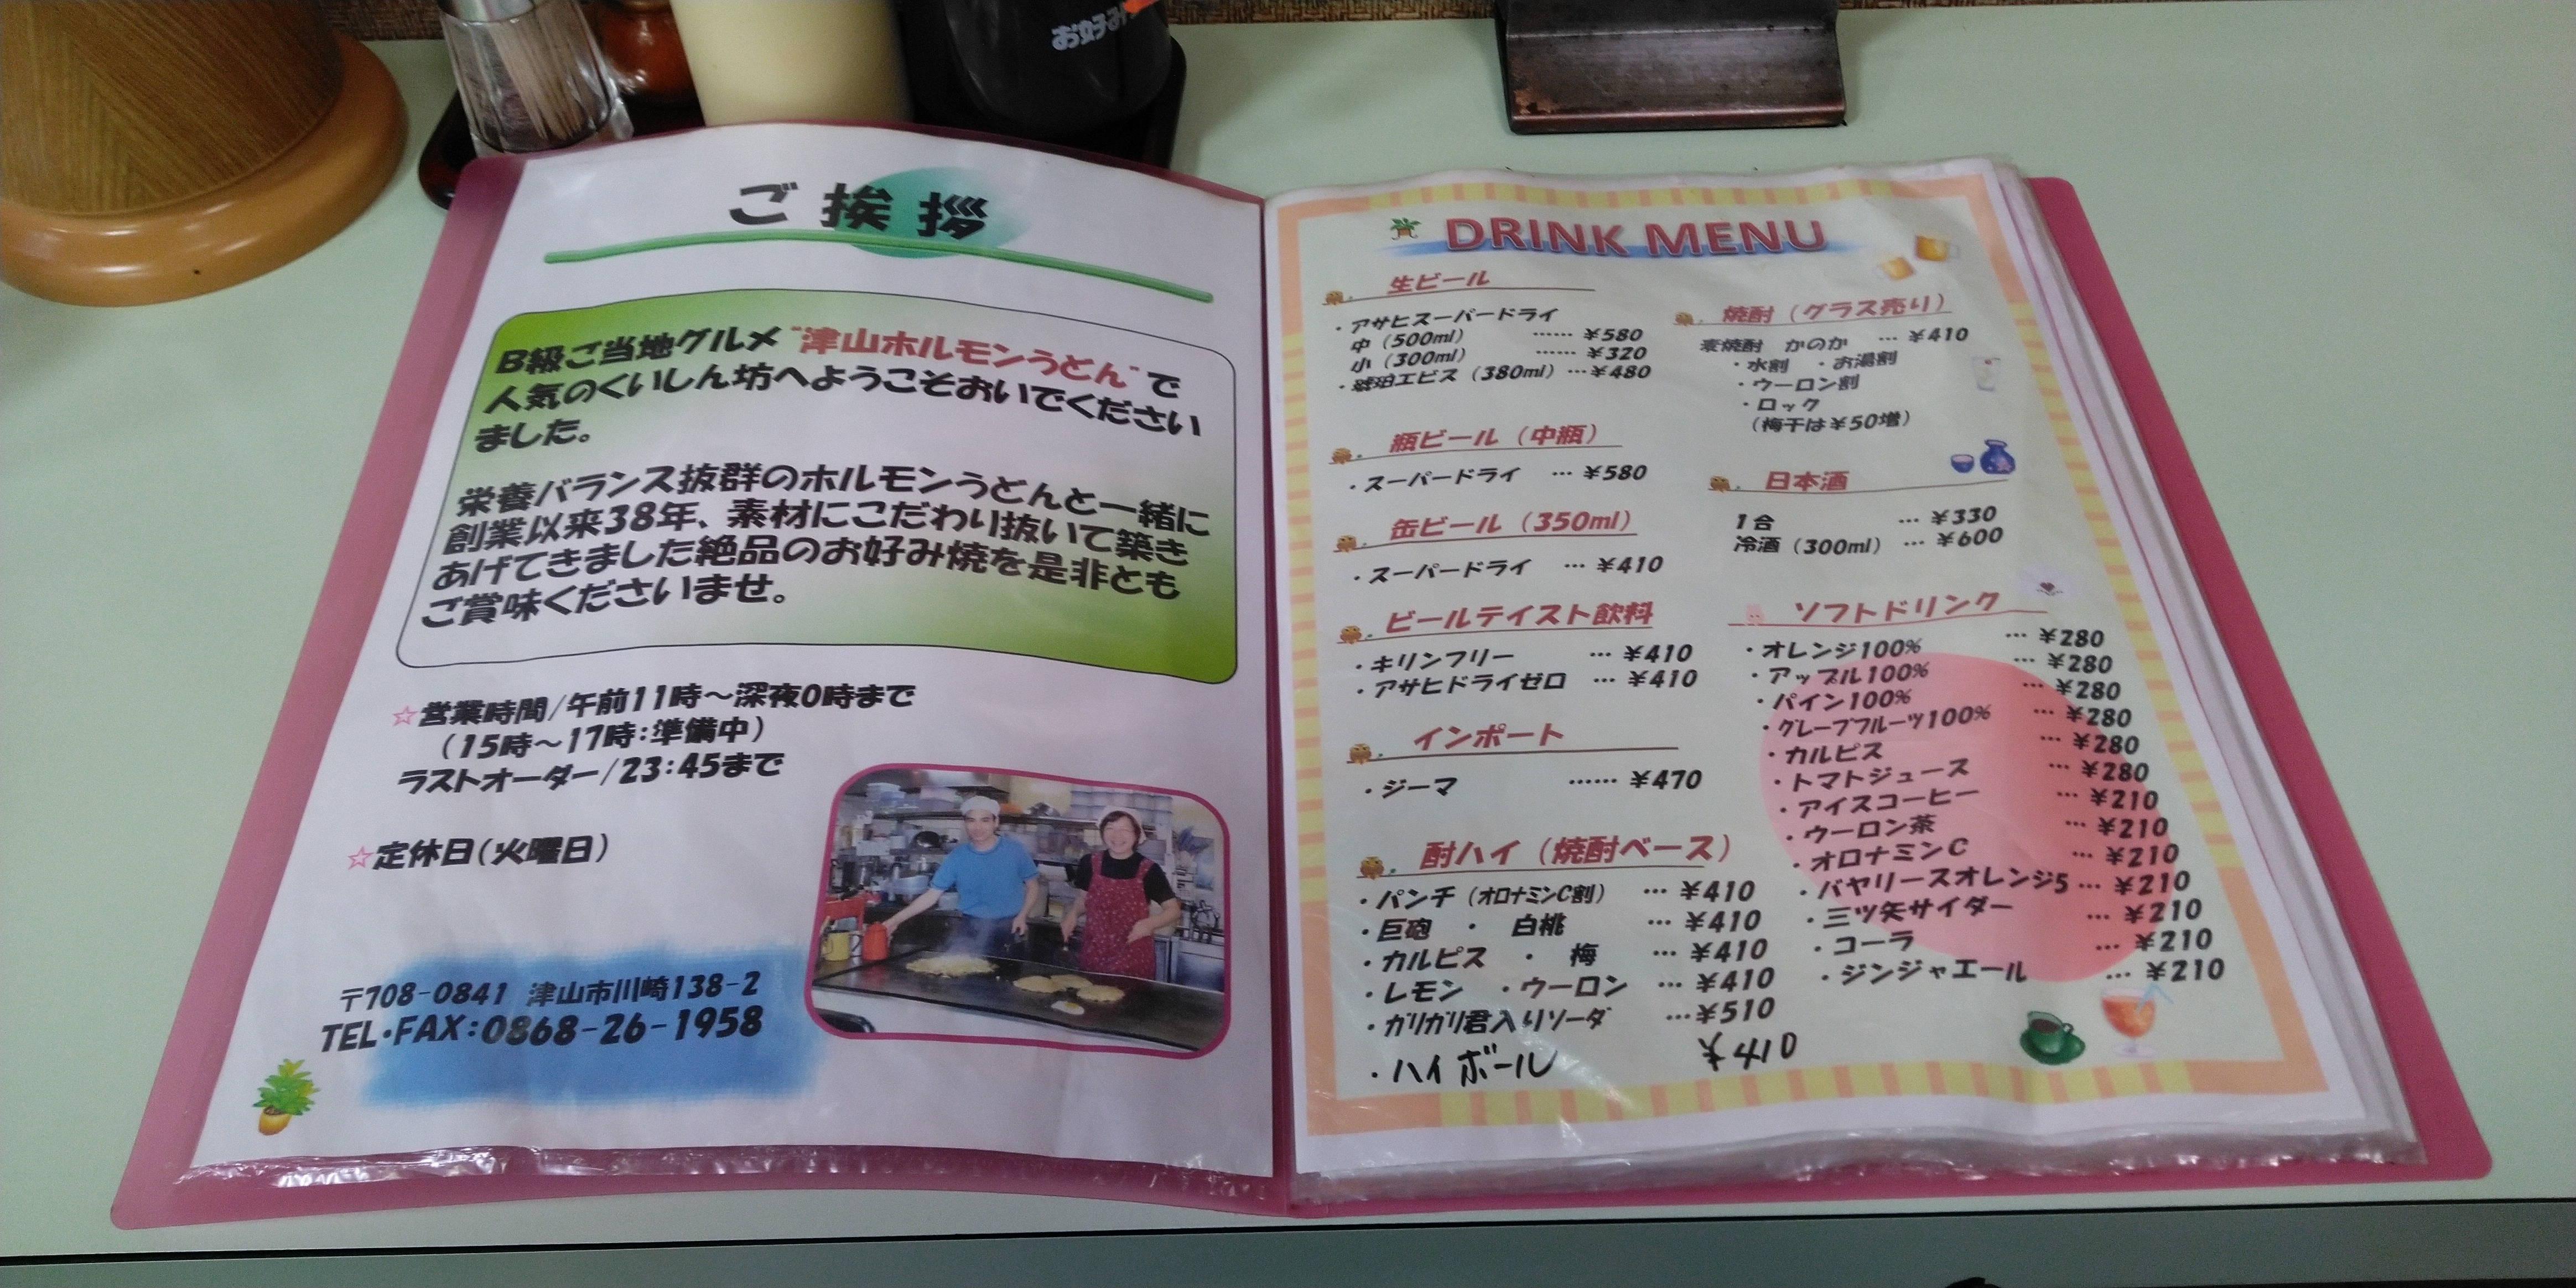 お好み
ご挨拶
B級ご当地グルメ"津山ホルモンうどん"で
人気のくいしん坊へようこそおいでください
ました。
栄養バランス抜群のホルモンうどんと一緒に
創業以来38年、素材にこだわり抜いて築き
あげてきました絶品のお好み焼を是非とも
ご賞味くださいませ。
☆営業時間/午前11時～深夜0時まで
（15時～17時:準備中）
ラストオーダー/23:45まで
☆定休日(火曜日)
〒708-0841 津山市川崎138-2
TEL・FAX:0868-26-1958
DRINK MENU
生ビール
・アサヒスーパードライ
中（500ml） …… ¥580
小（300ml） …… ¥320
・琥珀エビス（380ml）…¥480
瓶ビール（中瓶）
・スーパードライ … ¥580
缶ビール（350ml）
・スーパードライ … ¥410
ビールテイスト飲料
・キリンフリー … ¥410
・アサヒドライゼロ … ¥410
インポート
・ジーマ …… ¥470
酎ハイ（焼酎ベース）
・パンチ（オロナミンC割） … ¥410
・巨砲 ・ 白桃 … ¥410
・カルピス ・ 梅 … ¥410
・レモン ・ウーロン … ¥410
・ガリガリ君入りソーダ …¥510
・ハイボール ¥410
焼酎（グラス売り）
麦焼酎 かのか … ¥410
・水割 ・お湯割
・ウーロン割
・ロック
（梅干は¥50増）
日本酒
1合 … ¥330
冷酒（300ml） … ¥600
ソフトドリンク
・オレンジ100% … ¥280
・アップル100% … ¥280
・パイン100% … ¥280
・グレープフルーツ100% … ¥280
・カルピス … ¥280
・トマトジュース … ¥280
・アイスコーヒー … ¥210
・ウーロン茶 … ¥210
・オロナミンC … ¥210
・バヤリースオレンジ5 … ¥210
・三ツ矢サイダー … ¥210
・コーラ … ¥210
・ジンジャエール … ¥210